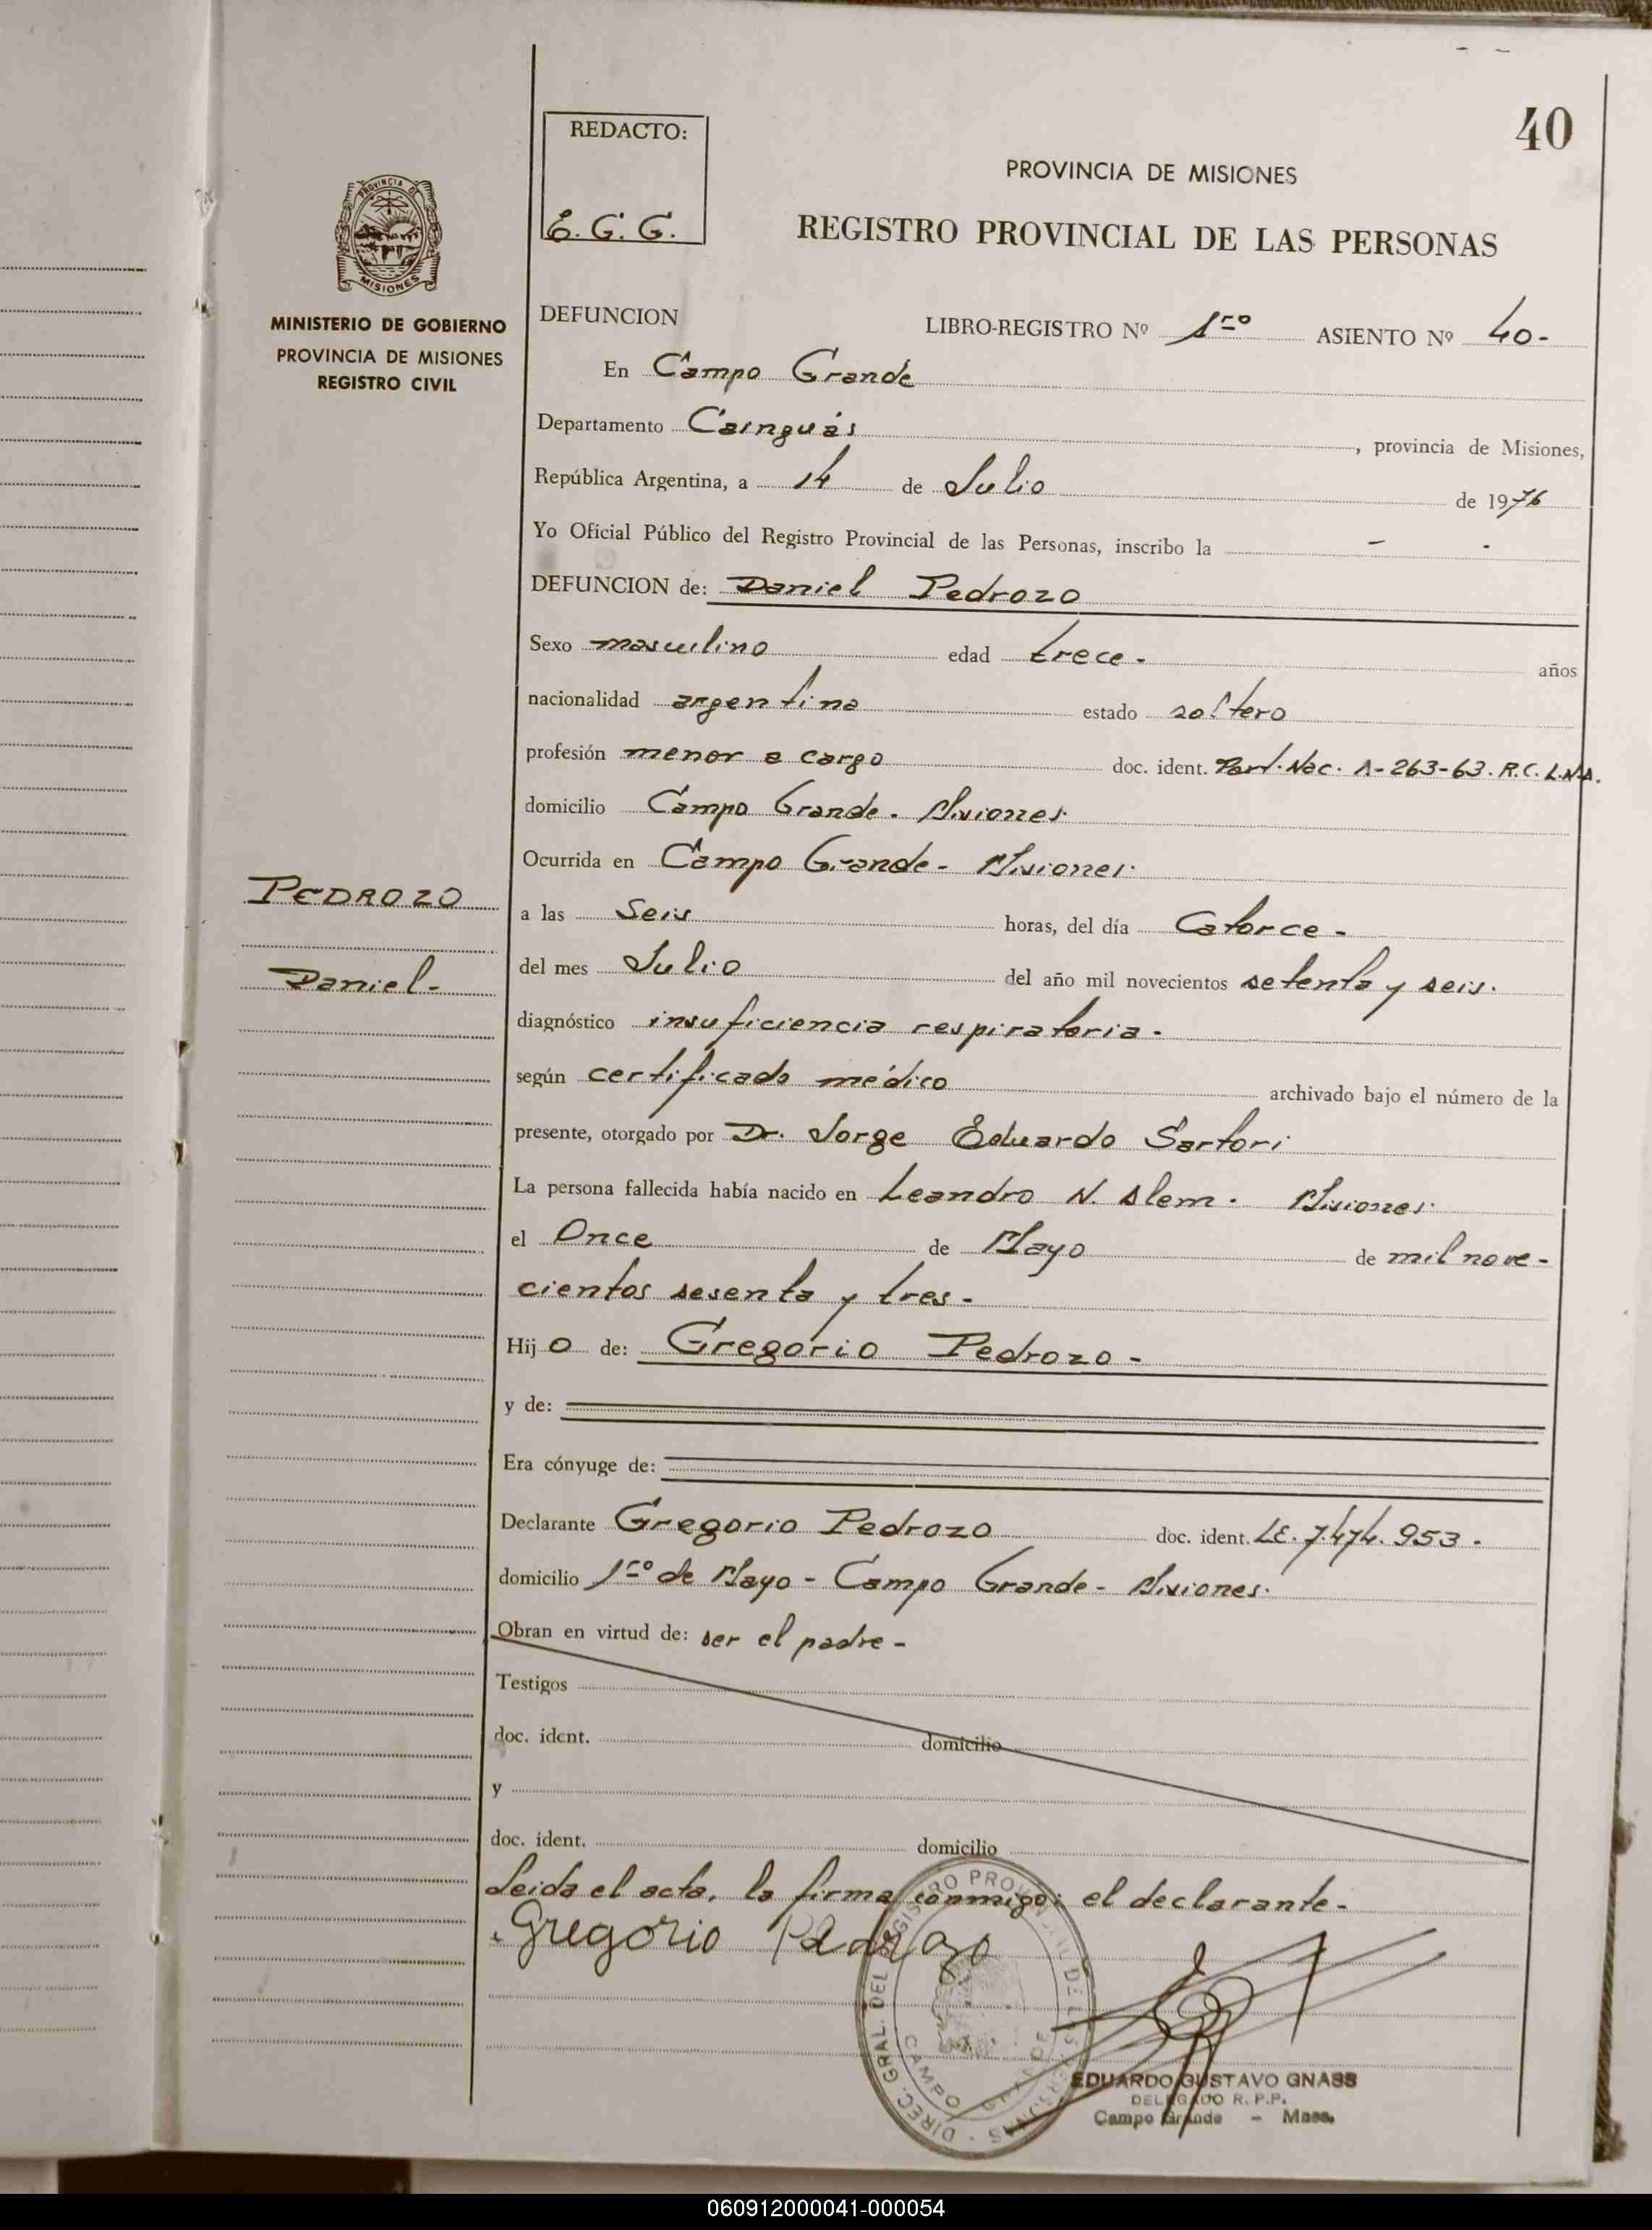 40
REDACTO:
E. G. G.
PROVINCIA DE MISIONES
REGISTRO PROVINCIAL DE LAS PERSONAS
PROVINCIA DE
MISIONES
MINISTERIO DE GOBIERNO
PROVINCIA DE MISIONES
REGISTRO CIVIL
DEFUNCION LIBRO-REGISTRO Nº 1ro ASIENTO Nº 40-
En Campo Grande
Departamento Cainguás, provincia de Misiones,
República Argentina, a 14 de Julio de 1976
Yo Oficial Público del Registro Provincial de las Personas, inscribo la - -
DEFUNCION de: Daniel Pedrozo
Sexo masculino edad trece - años
nacionalidad argentina estado soltero
profesión menor a cargo doc. ident. Part. Nac. A-263-63. R.C. L.N.A.
domicilio Campo Grande - Misiones.
Ocurrida en Campo Grande - Misiones.
PEDROZO
Daniel-
a las Seis horas, del día Catorce -
del mes Julio del año mil novecientos setenta y seis.
diagnóstico insuficiencia respiratoria -
según certificado médico archivado bajo el número de la
presente, otorgado por Dr. Jorge Eduardo Sartori
La persona fallecida había nacido en Leandro N. Alem. Misiones.
el Once de Mayo de mil nove-
cientos sesenta y tres -
Hijo de: Gregorio Pedrozo -
y de:
Era cónyuge de:
Declarante Gregorio Pedrozo doc. ident. LE. 7.474.953 -
domicilio 1ro de Mayo - Campo Grande - Misiones.
Obran en virtud de: ser el padre -
Testigos
doc. ident. domicilio
y
doc. ident. domicilio
Leida el acta, la firma conmigo; el declarante -
Gregorio Pedrozo
DIREC. GRAL. DEL REGISTRO PROVINCIAL DE LAS PERSONAS -
CAMPO GRANDE
EDUARDO GUSTAVO GNASS
DELEGADO R. P.P.
Campo Grande - Mnes.
060912000041-000054